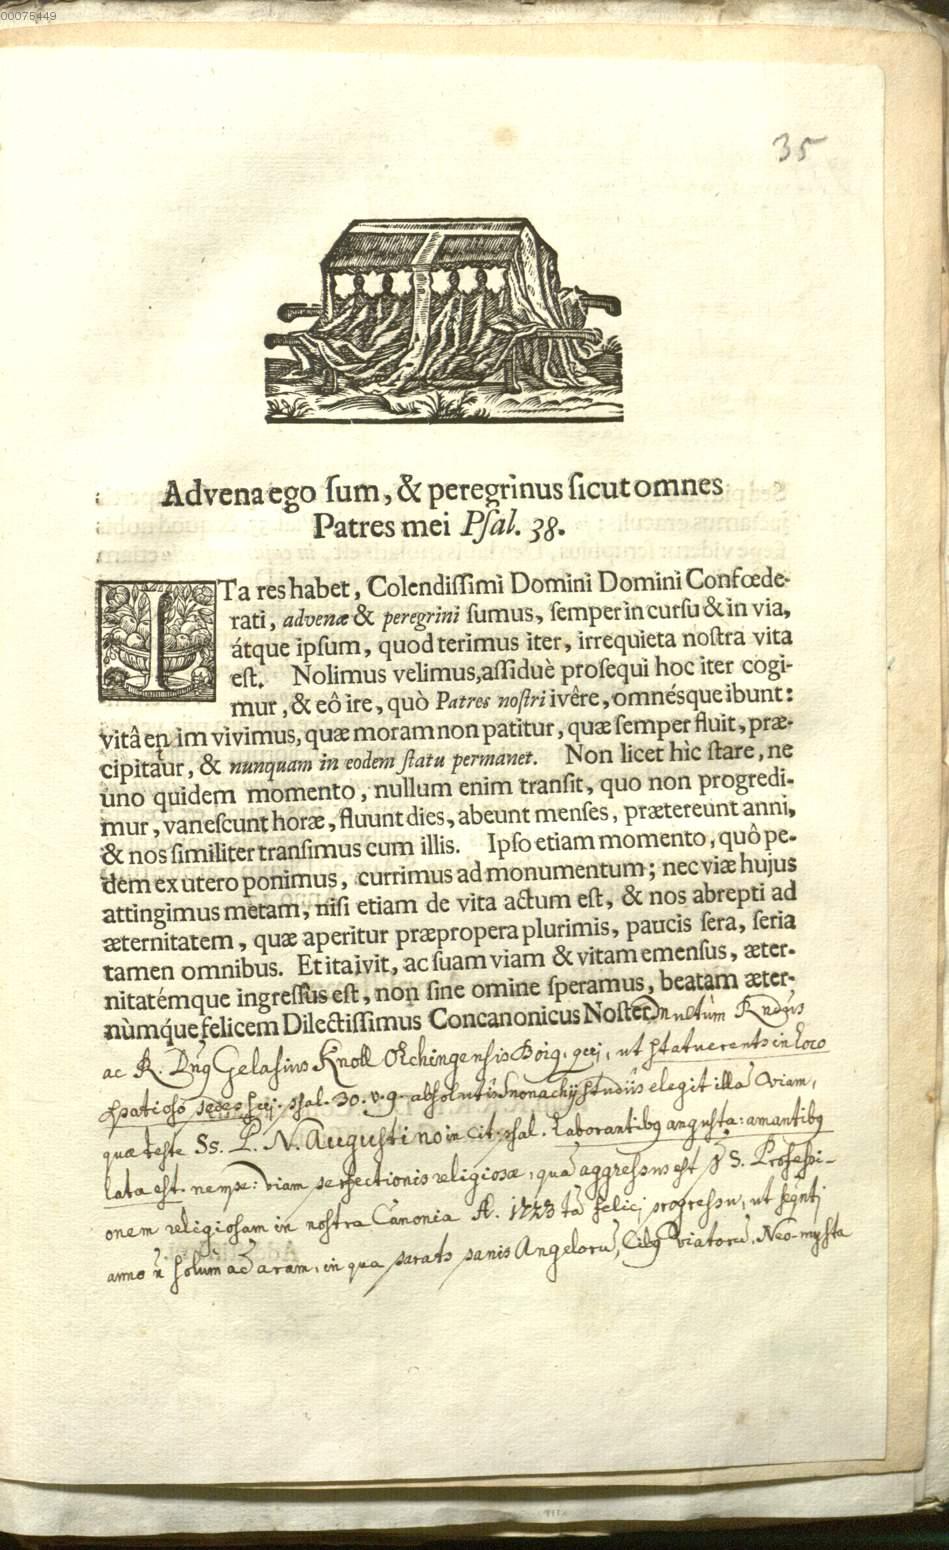 00075449
35
Advena ego ſum, & peregrinus ſicut omnes
Patres mei Pſal. 38.
ITa res habet, Colendiſſimi Domini Domini Confœde-
rati, advenæ & peregrini ſumus, ſemper in curſu & in via,
átque ipſum, quod terimus iter, irrequieta noſtra vita
eſt. Nolimus velimus, aſſiduè proſequi hoc iter cogi-
mur, & eô ire, quò Patres noſtri ivêre, omnésque ibunt:
vitâ enim vivimus, quæ moram non patitur, quæ ſemper fluit, præ-
cipitatur, & nunquam in eodem ſtatu permanet. Non licet hic ſtare, ne
uno quidem momento, nullum enim tranſit, quo non progredi-
mur, vaneſcunt horæ, fluunt dies, abeunt menſes, prætereunt anni,
& nos ſimiliter tranſimus cum illis. Ipſo etiam momento, quô pe-
dem ex utero ponimus, currimus ad monumentum; nec viæ hujus
attingimus metam, niſi etiam de vita actum eſt, & nos abrepti ad
æternitatem, quæ aperitur præpropera plurimis, paucis ſera, ſeria
tamen omnibus. Et ita ivit, ac ſuam viam & vitam emenſus, æter-
nitatémque ingreſſus eſt, non ſine omine ſperamus, beatam æter-
nùmque felicem Dilectiſſimus Concanonicus Noſter multùm Rndus
ac R. Dng Gelasius Knoll Olchingensis Boig, ut statuerents in Loco
spatioso pedes psal. 30. v. 9. absolutis Monachij studiis elegit illa viam,
quæ teste Ss. P. N. Augustino in cit. psal. laborantibg angusta: amantibg
lata est. nempe: viam perfectionis religiosæ, qua aggressus est p S. Professi-
onem religiosam in nostra Canonia A. 1723 ta felici progressu, ut seqnti
anno n solum ad aram, in qua parats panis Angeloru, Cibg Viatoru, Neo-mysta